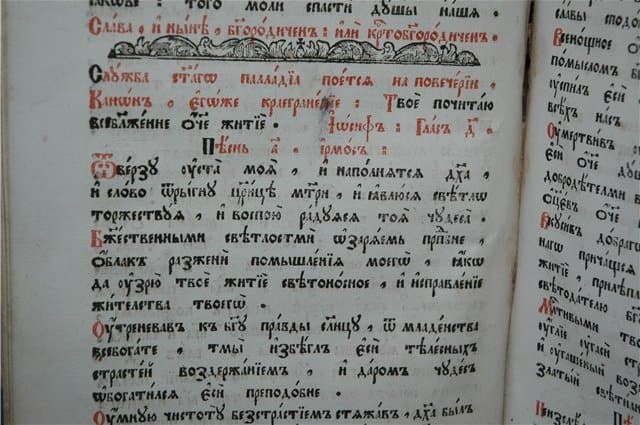 такѡве : того моли спасти дꙋшы нашѧ .
Сла́ва , и҆ ны́нѣ , бг҃оро́диченъ : и҆лѝ крⷭ҇тобг҃оро́диченъ .
Слꙋ́жба ст҃а́гѡ палла́дїа пое́тсѧ на повече́рїи .
Канѡ́нъ , є҆гѡ́же краегране́сїе : Твоѐ почита́ю
всебл҃же́нне ѻ҆́ч҃е житїѐ . І҆ѡ́сифъ : Гла́съ д҃ .
Пѣ́снь а҃ . і҆рмо́съ :
Ѿве́рзꙋ ᲂу҆ста̀ моѧ̑ , и҆ напо́лнѧтсѧ дх҃а ,
и҆ сло́во ѿры́гнꙋ цр҃и́цѣ мт҃ри , и҆ ꙗ҆влю́сѧ свѣ́тлѡ
торжествꙋ́ѧ , и҆ воспою̀ ра́дꙋѧсѧ тоѧ̀ чꙋдеса̀ .
Бж҃е́ственными свѣ́тлостми ѡ҆зарѧ́емь прпⷣбне ,
ѻ҆́блакъ разженѝ помышле́нїѧ моегѡ̀ , ꙗ҆́кѡ
да ᲂу҆зрю̀ твоѐ житїѐ свѣтоно́сное , и҆ и҆справле́нїе
жи́телства твоегѡ̀ .
Оу҆́треневавъ къ бг҃ꙋ пра́вды сл҃нцꙋ , ѿ младе́нства
всебога́те , тмы̀ и҆збѣ́глъ є҆сѝ тѣле́сныхъ
страсте́й воздержа́нїемъ , и҆ да́ромъ чꙋде́съ
ѡ҆богати́лсѧ є҆сѝ преподо́бне .
Оу҆́мнꙋю чистотꙋ̀ безстра́стїемъ стѧжа́въ , дх҃а бы́лъ
сла́вы
Всено́щное
по́мысломъ
ᲂу҆спи́лъ є҆сѝ
всѣ́хъ на́съ
Оу҆мертви́въ
є҆сѝ ѻ҆́ч҃е
добродѣ́телми
ѻ҆тцє́въ ѻ҆́ч҃е
на́гѡ
житїѐ , прилѣпи́
свѣтода́телю бг҃ꙋ
Мл҃твными
и҆ ᲂу҆гаше́ный
зла́тый свѣти́л